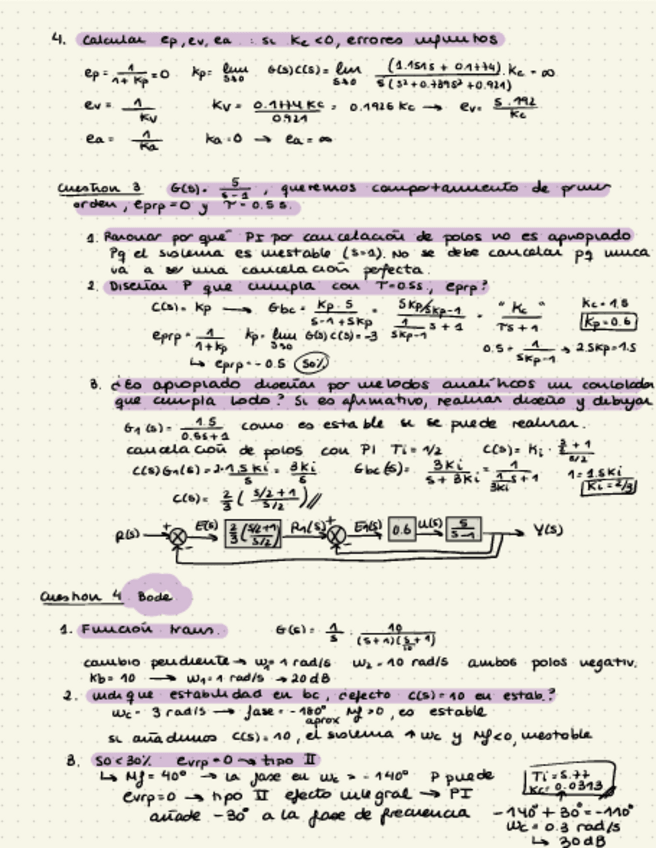 4. Calcular ep, ev, ea : si Kc <0, errores infinitos
ep = 1/(1+Kp) = 0   Kp = lim s→0 G(s)C(s) = lim s→0 (1.151s + 0.1774)/(s(s²+0.739s²+0.921)) . Kc = ∞
ev = 1/Kv   Kv = 0.1774 Kc/0.921 = 0.1926 Kc → ev = 5.192/Kc
ea = 1/Ka   Ka=0 → ea = ∞
Cuestion 3   G(s) = 5/(s-1), queremos comportamiento de primer
orden, eprp=0 y τ = 0.5 s.
1. Razonar por qué PI por cancelación de polos no es apropiado
Pq el sistema es inestable (s=1). No se debe cancelar pq nunca
va a ser una cancelación perfecta.
2. Diseñar P que cumpla con τ=0.5s, eprp?
C(s) = Kp → Gbc = Kp.5/(s-1+5Kp) = (5Kp/5Kp-1)/(1/(5Kp-1) s+1) = "Kc"/(τs+1)   Kc=1.5
Kp=0.6
eprp = 1/(1+Kp)   Kp = lim s→0 G(s)C(s) = -3   0.5 = 1/(5Kp-1) → 2.5Kp=1.5
↳ eprp = -0.5 (50%)
3. ¿Es apropiado diseñar por metodos analíticos un controlador
que cumpla todo? Si es afirmativo, realizar diseño y dibujar
G1(s) = 1.5/(0.5s+1) como es estable si se puede realizar.
cancelación de polos con PI Ti = 1/2   C(s) = Ki . (s/2 + 1)/(s/2)
C(s)G1(s) = 2.1,5Ki/s = 3Ki/s   Gbc(s) = 3Ki/(s+3Ki) = 1/(1/3Ki s+1)   1=1.5Ki
Ki=2/3
C(s) = 2/3 ((s/2+1)/(s/2)) //
R(s) + - E(s) 2/3 ((s/2+1)/(s/2)) R1(s) + - E1(s) 0.6 U(s) 5/(s-1) Y(s)
Cuestion 4 Bode
1. Función trans.   G(s) = 1/s . 10/((s+1)(s/10+1))
cambio pendiente → w1= 1 rad/s   w2 = 10 rad/s   ambos polos negativ.
Kb = 10 → w1= 1 rad/s → 20 dB
2. indique estabilidad en bc, ¿efecto C(s)=10 en estab.?
wc = 3 rad/s → fase = -180° aprox Mf >0, es estable
si añadimos C(s)=10, el sistema ↑ wc y Mf<0, inestable
3. SO<30% evrp=0 → tipo II
↳ Mf = 40° → la fase en wc = -140°   P puede
Ti = 5.77
Kc = 0.0313
evrp=0 → tipo II efecto integral → PI
añade -30° a la fase de frecuencia   -140° + 30° = -110°
wc = 0.3 rad/s
↳ 30 dB